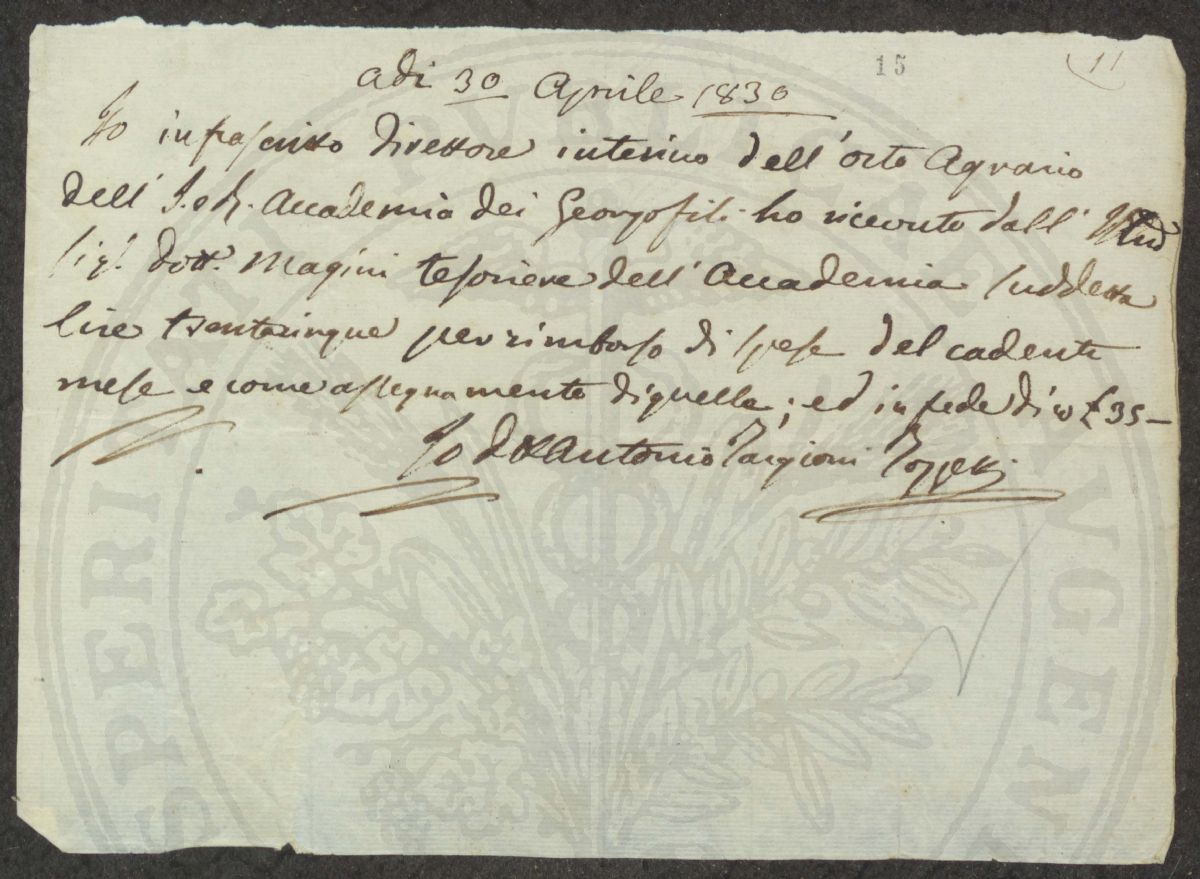 15
11
Adi 30 Aprile 1830
Io infrascritto Direttore interino dell'orto Agrario
dell' I. e R. Accademia dei Georgofili ho ricevuto dall'
Sig. Dott. Magini tesoriere dell'Accademia suddetta
lire trentacinque per rimborso di spese del cadente
mese e come assegnamento di quelle; ed in fede dico £ 35–
Io Dott. Antonio Targioni Tozzetti